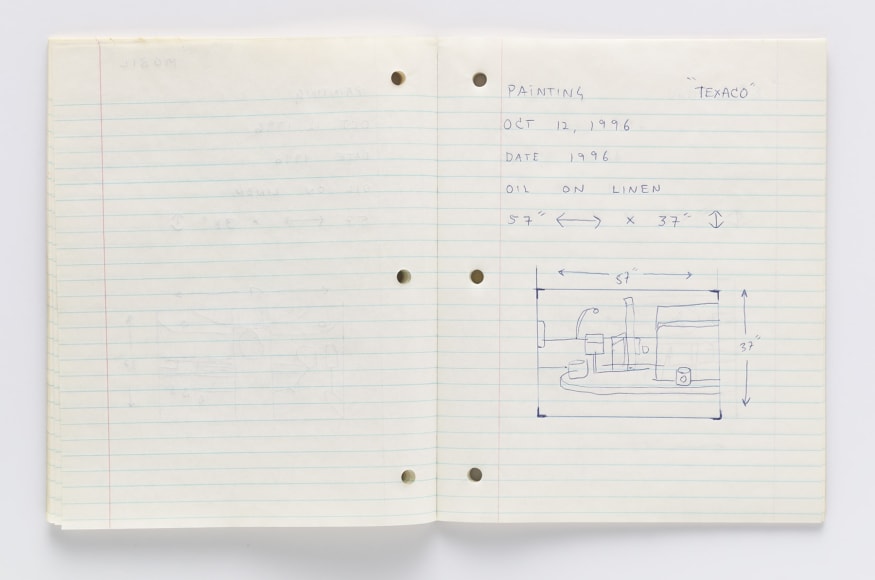 PAINTING "TEXACO"
OCT 12, 1996
DATE 1996
OIL ON LINEN
57" ↔ x 37" ↕
57"
37"